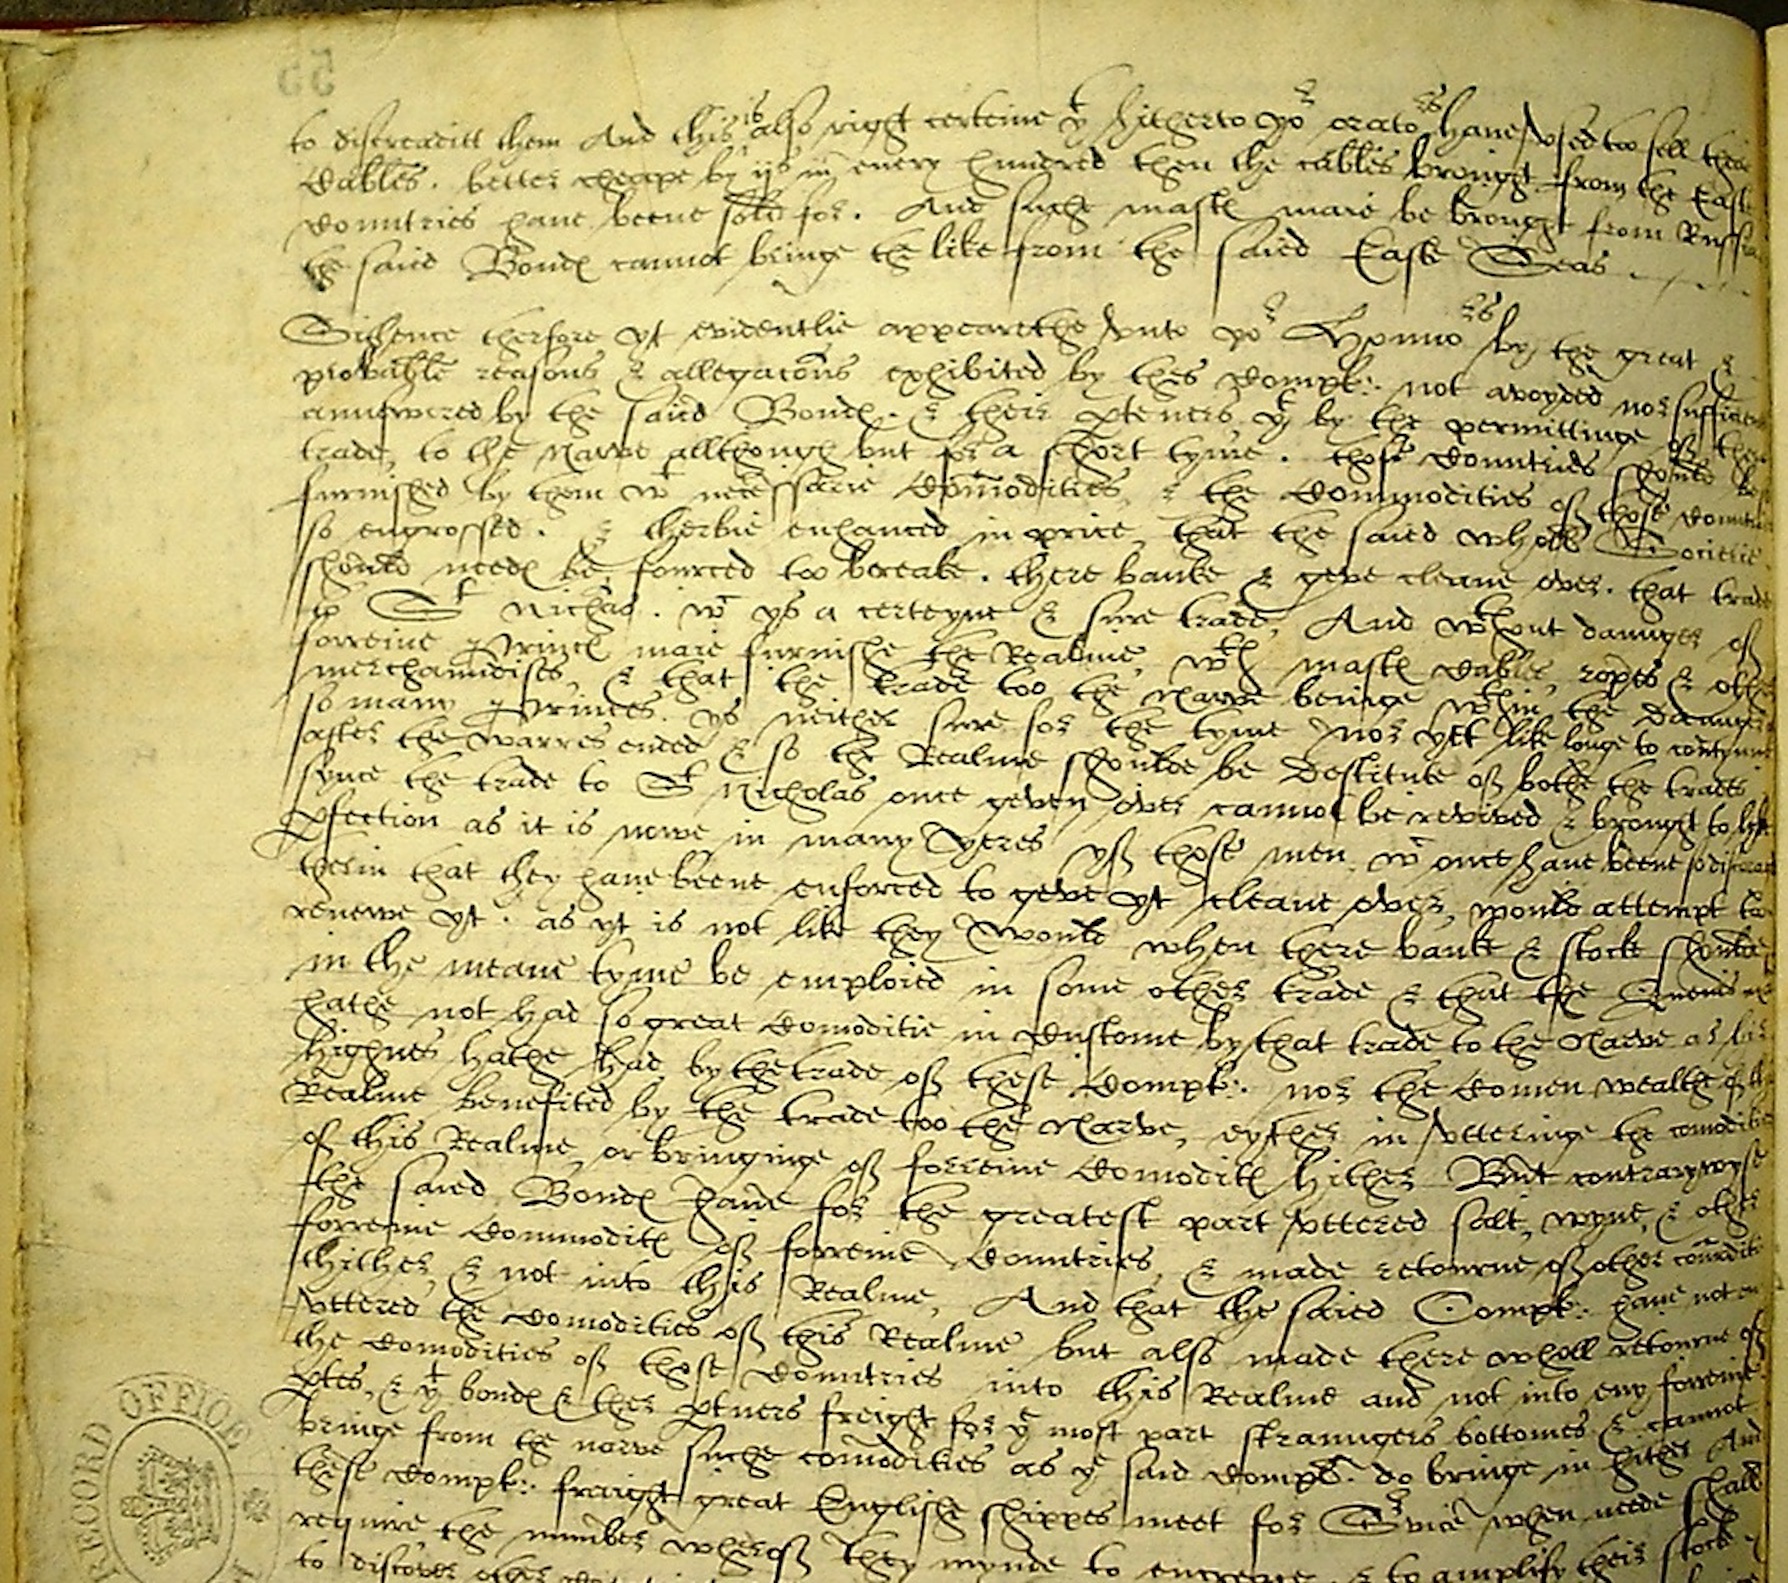 to discreaditt them And this is also right certeine yt hitherto yor orators have used too sell their
Cables. better cheape by ijs in every hundred then the cables brought from the Easte
Countries have beene sold for. And suche mastes maie be brought from Russia
the said Bondes cannot bringe the like from the saied Easte Seas.
Sithence therfore yt evidentlie appearethe unto yor Honnors by the great &
probable reasons & allegacons exhibited by thes Complts: not avoyded nor sufficient
aunswered by the said Bondes. & their pteners yt by the permittinge of there
trade, to the Narve allthough but for a short tyme. those Countries should be
furnished by them wt necessarie Comodities, & the Commodities of those Countries
so engrossed. & therbie enhanced in price, that the saied whole Societie
should needes be fourced too breake. there banke & geve cleane over. that trade
to St Nichãs. wch ys a certeyne & sure trade, And wthout daunger of
forreine Princes maie furnishe the Realme, wth mastes Cables, ropes & other
merchaundises, & that the trade too the Narve beinge wthin the daunger
so many Princes. ys neither sure for the tyme nor yett like longe to contynue
after the warres ended & so the Realme shoulde be destitute of bothe the trades
synce the trade to St Nicholas once geven over cannot be revived & brought to like
pfection as it is nowe in many yeres yf those men wch once have beene so discouraged
therin that they have beene enforced to geve yt cleane over, would attempt to
renewe yt. as yt is not like they would when there banke & stocke should
in the meane tyme be emploied in some other trade & that the Quenes
hathe not had so great Comoditie in Custome by that trade to the Narve as hir
highnes hathe had by the trade of these Complts: nor the Comen wealthe of this
Realme benefited by the trade too the Narve, eyther in utteringe the comodities
of this Realme, or bringinge of forreine Comodites hither But contrarywyse
the saied Bondes have for the greatest part uttered salt, wyne, & other
forreine Commodites of forreine Countries, & made retourne of other comoditi
thither, & not into this Realme, And that the saied Complts: have not on
uttered the Comodities of this Realme but also made there wholl retourne of
the Comodities of those Countries into this Realme and not into eny forreine
ptes, & yt bondes & ther ptners freight for ye most part straungers bottomes & cannot
bringe from the narve suche comodities as ye said Complts. do bringe in hither And
these Complts: freight great Englishe shippes meet for Service when neede shall
require the number wherof they mynde to encrease, & to amplify their stocke
to discover other
55
RECORD OFFICE